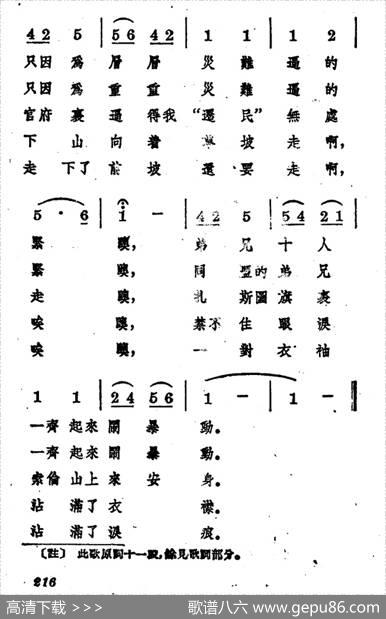 4 2 5 | 5 6 4 2 | 1 1 | 1 2
只因爲層層災難逼的
只因爲重重災難逼的
官府裏逼得我“逼民”無處
下山向着 坡走啊,
走下了前坡還要走啊,
5 · 6 | i — | 4 2 5 | 5 4 2 1
緊噢,弟兄十人
緊噢,同盟的弟兄
走噢,扎斯圖旗裏
唉噢,禁不住眼淚
唉噢,一對衣袖
1 1 | 2 4 5 6 | 1 — | 1 — ‖
一齊起來鬧暴動。
一齊起來鬧暴動。
索倫山上來安身。
沾滿了衣襟。
沾滿了淚痕。
〔註〕此歌原詞十一段,餘見歌詞部分。
216
高清下载 >>>
歌谱八六 www.gepu86.com